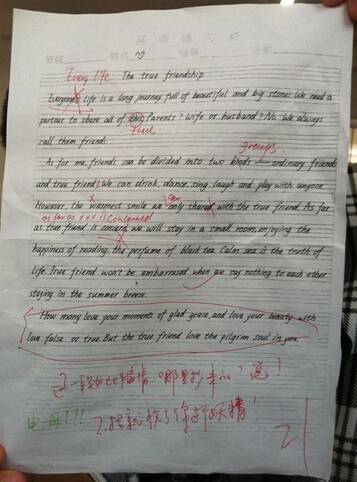 英语练习纸
Every life The true friendship
Everyone's life is a long journey full of beautiful and big stories. We need a
partner to share all of this. Parents? Wife or husband? No. We always
call them friends.
these
groups
As for me, friends can be divided into two kinds — ordinary friends
and true friend. We can drink, dance, sing, laugh and play with anyone.
However, the warmest smile we only shared with the true friend. As far
can
as far as xxx is concerned
as true friend is concerd, we will stay in a small room, enjoying the
happiness of reading, the perfume of black tea. Calm sea is the truth of
life. True friend won't be embarrased when we say nothing to each other
staying in the summer breeze.
How many love your moments of glad grace, and love your beauty with
love false or true. But the true friend love the pilgrim soul in you.
这一段如此煽情 哪里抄来的? 说!
2